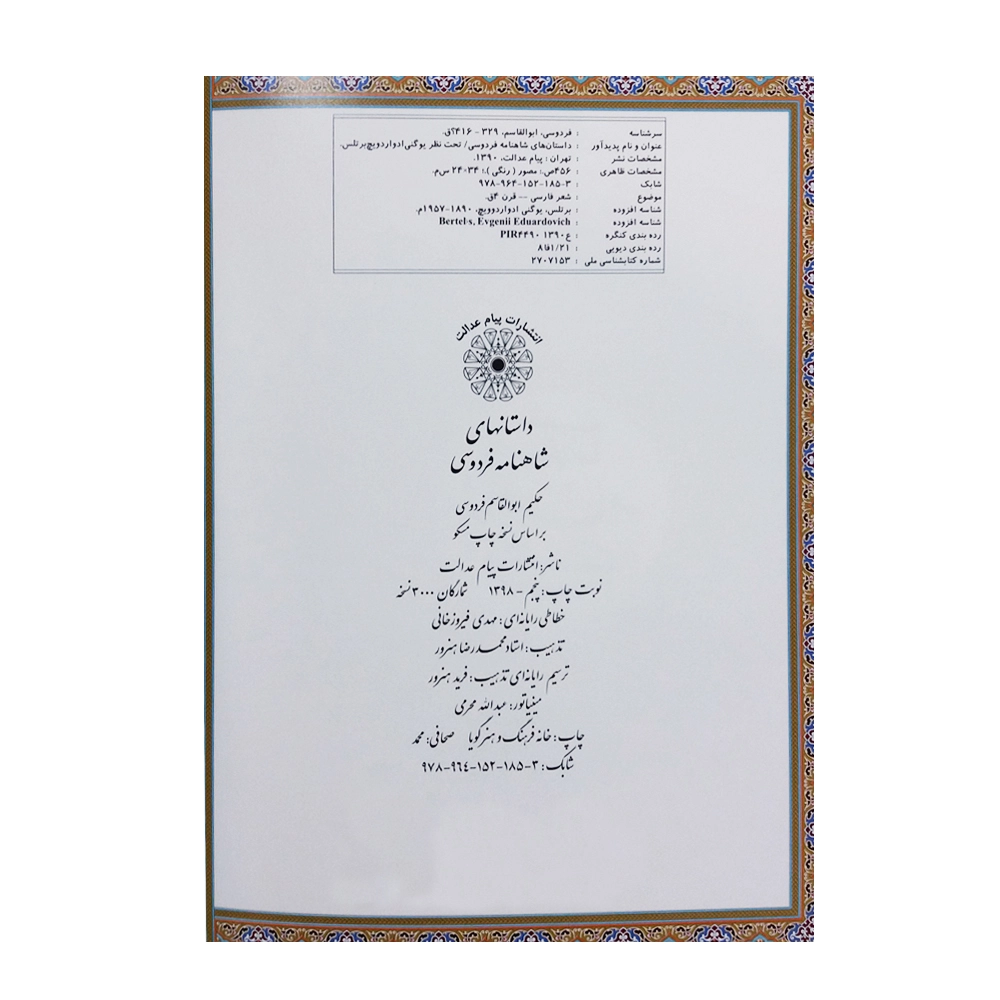 سرشناسه : فردوسی، ابوالقاسم، ۳۲۹ - ۴۱۶؟ق.
عنوان و نام پدیدآور : داستان‌های شاهنامه فردوسی/ تحت نظر یوگنی ادواردویچ برتلس.
مشخصات نشر : تهران : پیام عدالت، ۱۳۹۰.
مشخصات ظاهری : ۴۵۶ص.: مصور ( رنگی )؛ ۳۴×۲۴ س‌م.
شابک : ۹۷۸-۹۶۴-۱۵۲-۱۸۵-۳
موضوع : شعر فارسی -- قرن ۴ق.
شناسه افزوده : برتلس، یوگنی ادواردوویچ، ۱۸۹۰-۱۹۵۷م.
شناسه افزوده : Bertel,s, Evgenii Eduardovich
رده بندی کنگره : PIR۴۴۹۰ ۱۳۹۰ع
رده بندی دیویی : ۸فا۱/۲۱
شماره کتابشناسی ملی : ۲۷۰۷۱۵۳
انتشارات پیام عدالت
داستانهای
شاهنامه فردوسی
حکیم ابوالقاسم فردوسی
بر اساس نسخه چاپ مسکو
ناشر: انتشارات پیام عدالت
نوبت چاپ: پنجم - ۱۳۹۸ شمارگان ۳۰۰۰ نسخه
خطاطی رایانه‌ای: مهدی فیروزخانی
تذهیب: استاد محمدرضا هنرور
ترسیم رایانه‌ای تذهیب: فرید هنرور
مینیاتور: عبدالله محرمی
چاپ: خانه فرهنگ و هنر گویا صحافی: محمد
شابک: ۳-۱۸۵-۱۵۲-۹۶۴-۹۷۸